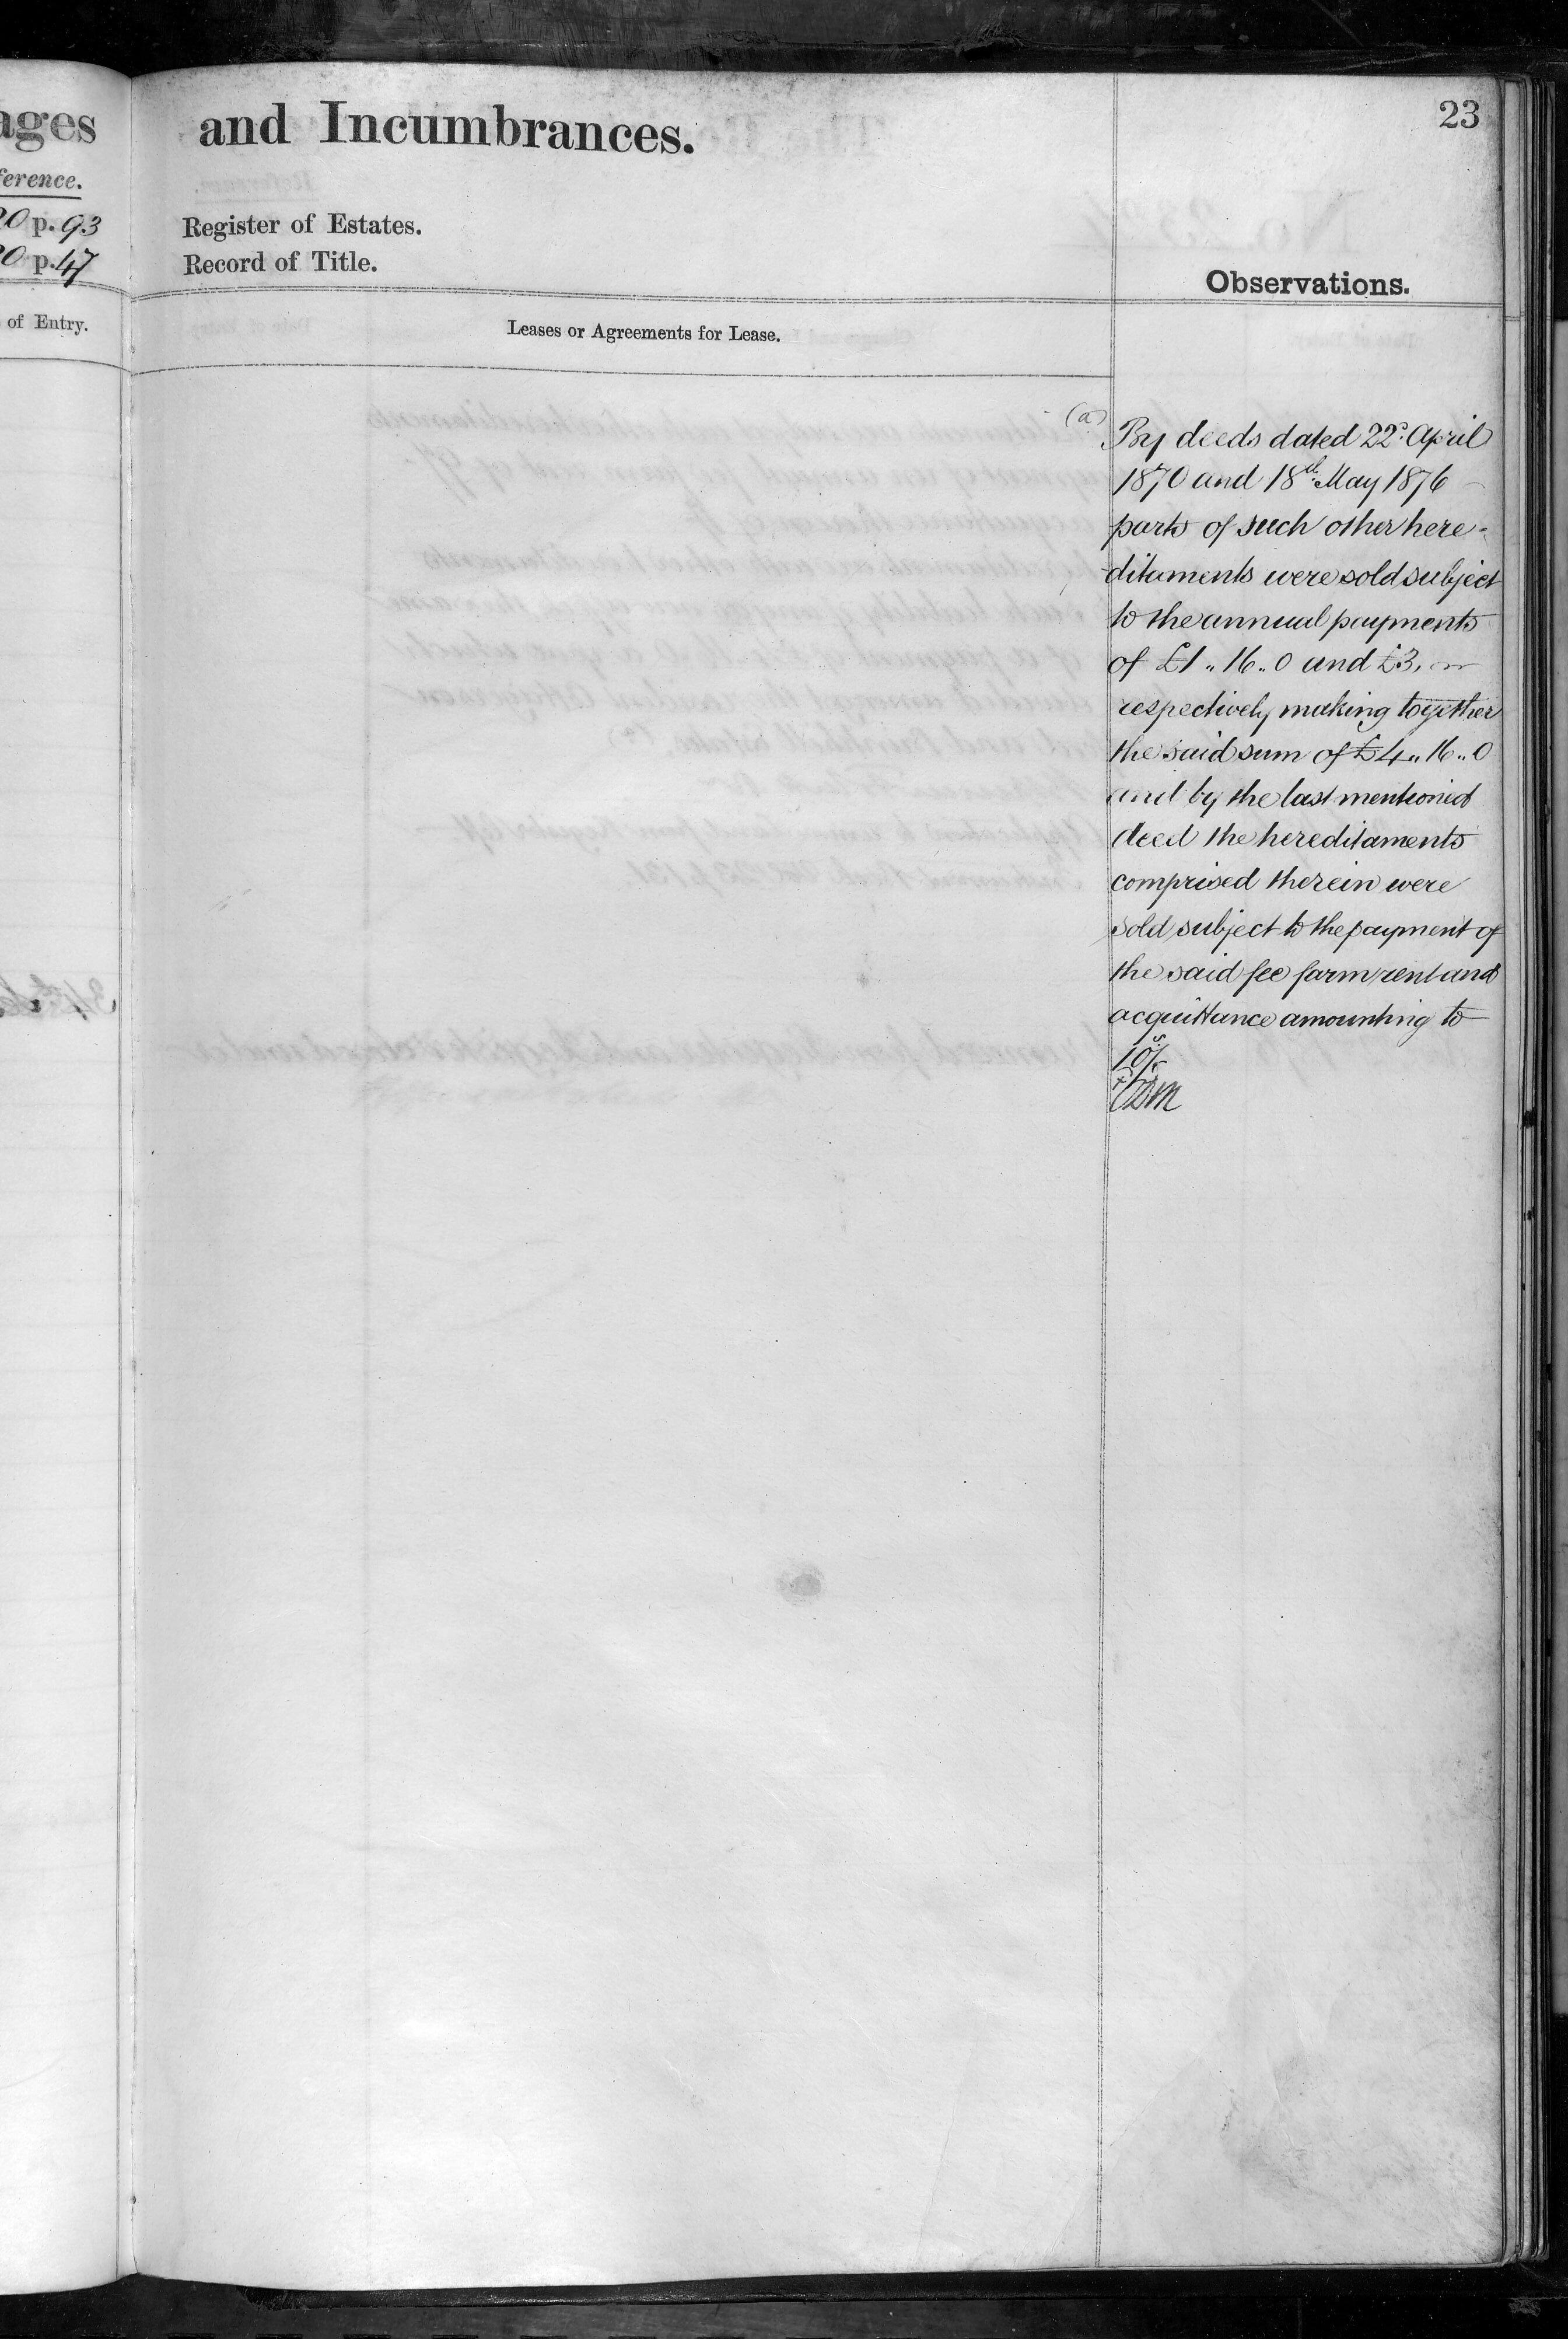 ages
ference.
20 p. 93
20 p. 47
of Entry.
and Incumbrances.
23
Register of Estates.
Record of Title.
Observations.
Leases or Agreements for Lease.
(a) By deeds dated 22d. April
1870 and 18th. May 1876
parts of such other here-
ditaments were sold subject
to the annual payments
of £1 ,, 16 ,, 0 and £3,
respectively making together
the said sum of £4 ,, 16 ,, 0
and by the last mentioned
deed the hereditaments
comprised therein were
sold subject to the payment of
the said fee farm rent and
acquittance amounting to
10s/-